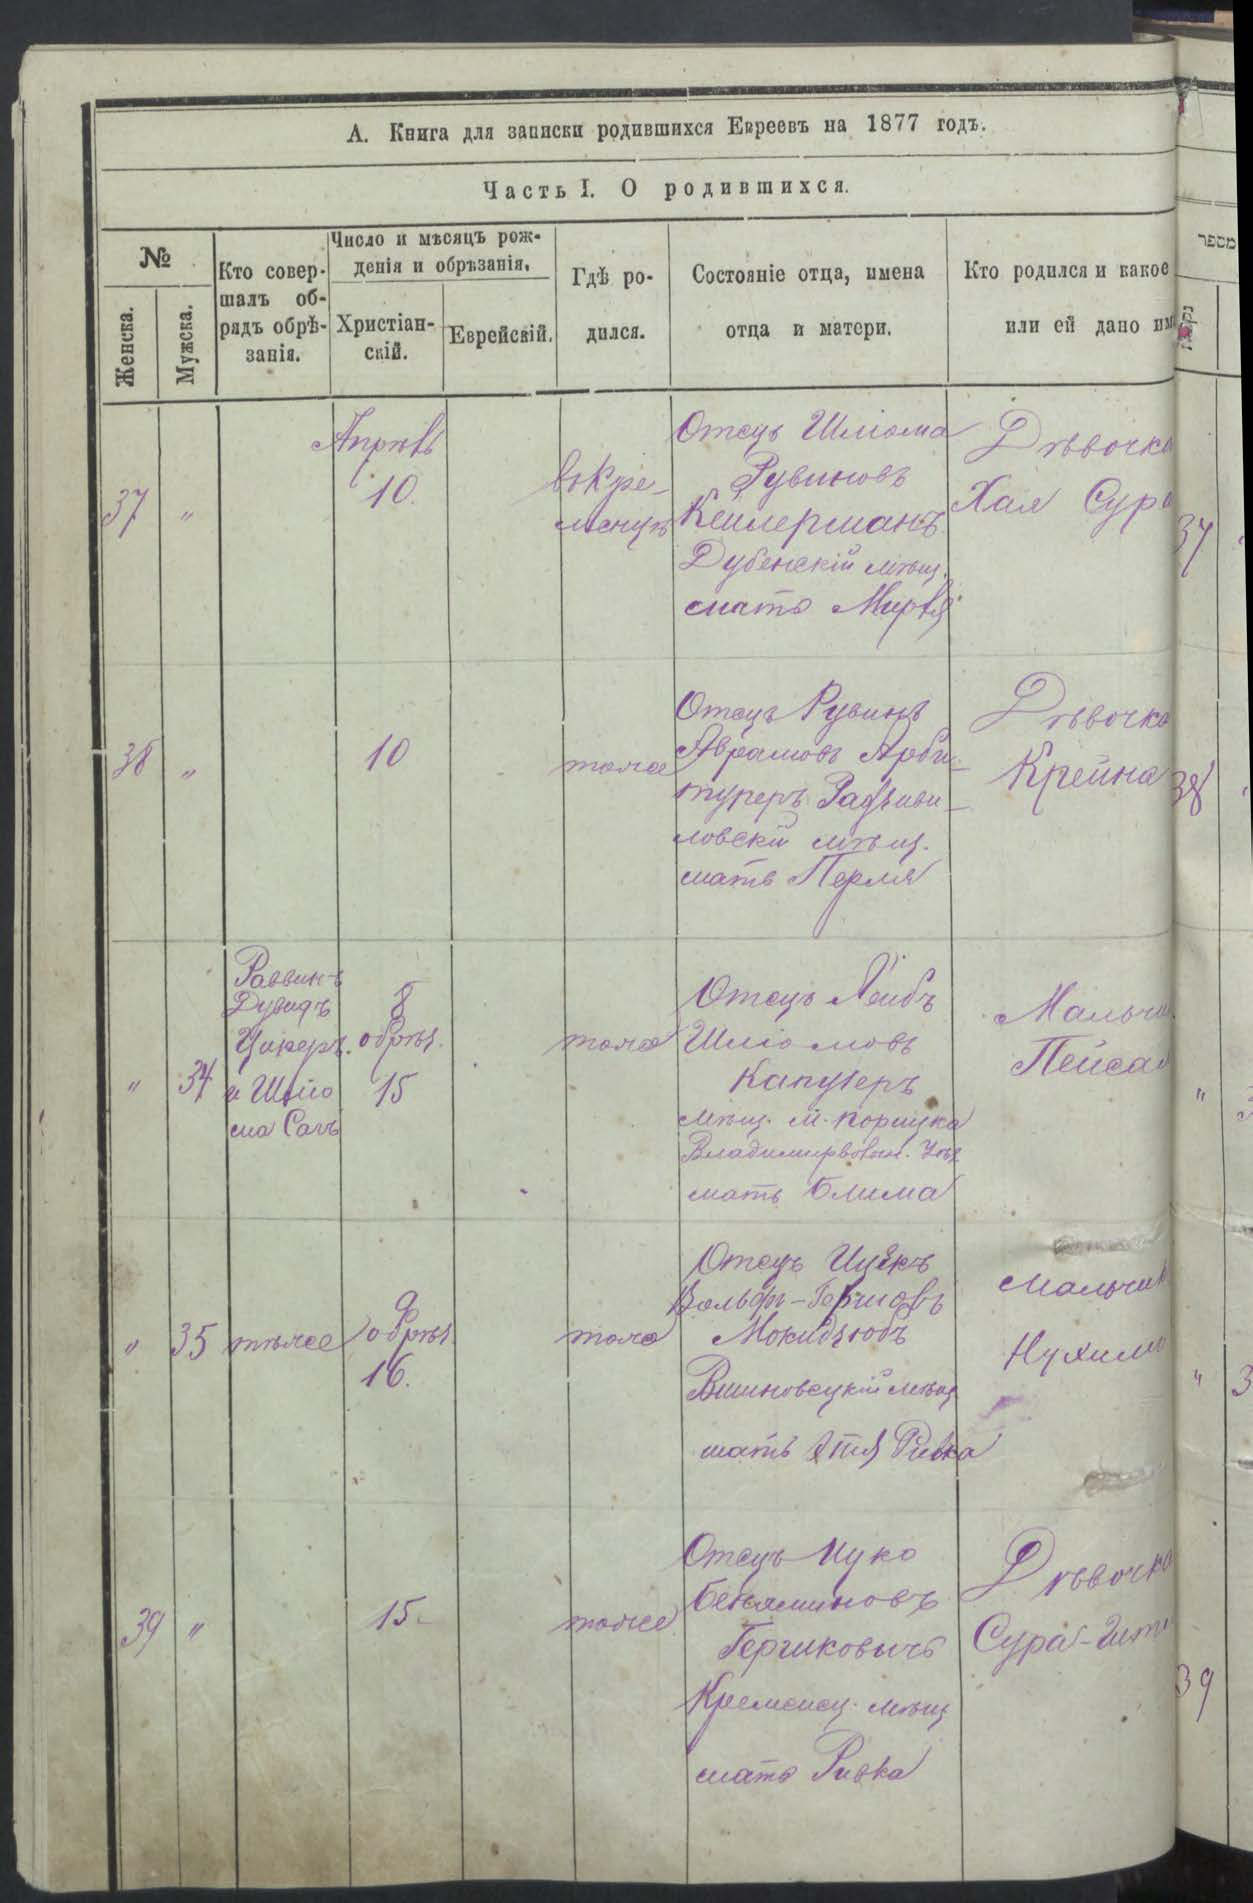 А. Книга для записки родившихся Евреевъ на 1877 годъ.
Часть I. О родившихся.
№
Женска.
Мужска.
Кто совер-
шалъ об-
рядъ обрѣ-
занія.
Число и мѣсяцъ рож-
денія и обрѣзанія.
Христіан-
скій.
Еврейскій.
Гдѣ ро-
дился.
Состояніе отца, имена
отца и матери.
Кто родился и какое
или ей дано им
מספר
37
"
10.
въ Кре-
менцѣ
Отецъ Шлiома
Рувиновъ
Кейлерманъ
Дубенскій мѣщ.
мать
Дѣвочка
Хая Сура
37
38
"
10
тоже
Отецъ Рувинъ
Аврамовъ Арби-
туреръ Радзиви-
ловскій мѣщ.
мать Перля
Дѣвочка
Крейна
38
"
34
Раввинъ
Дувидъ
Цукеръ
и Шліо
ма
8
обрѣз.
15
тоже
Отецъ Лейбъ
Шліомовъ
Капузеръ
мѣщ. м.
мать Блима
Мальчи
Пейсах
"
"
35
тѣже
9
обрѣз
16.
тоже
Отецъ Ицекъ
Вольфъ-Гершовъ
мѣщ
мать Этя Ривка
Мальчик
Нухим
"
3
39
"
15.
тоже
Отецъ Ицко
Беняминовъ
Гершковычъ
Кременец. мѣщ
мать Ривка
Дѣвочка
Сура-
39